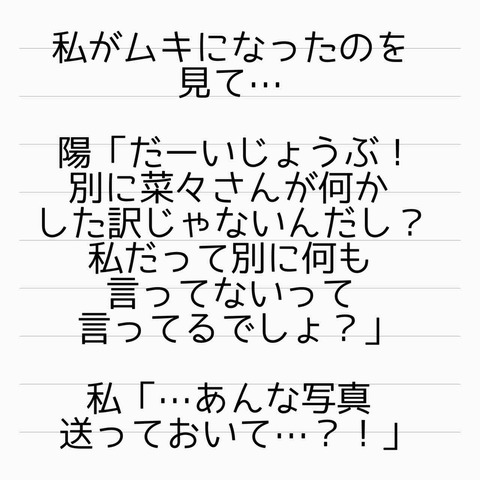 私がムキになったのを
見て…
陽「だーいじょうぶ！
別に菜々さんが何か
した訳じゃないんだし？
私だって別に何も
言ってないって
言ってるでしょ？」
私「…あんな写真
送っておいて…？！」